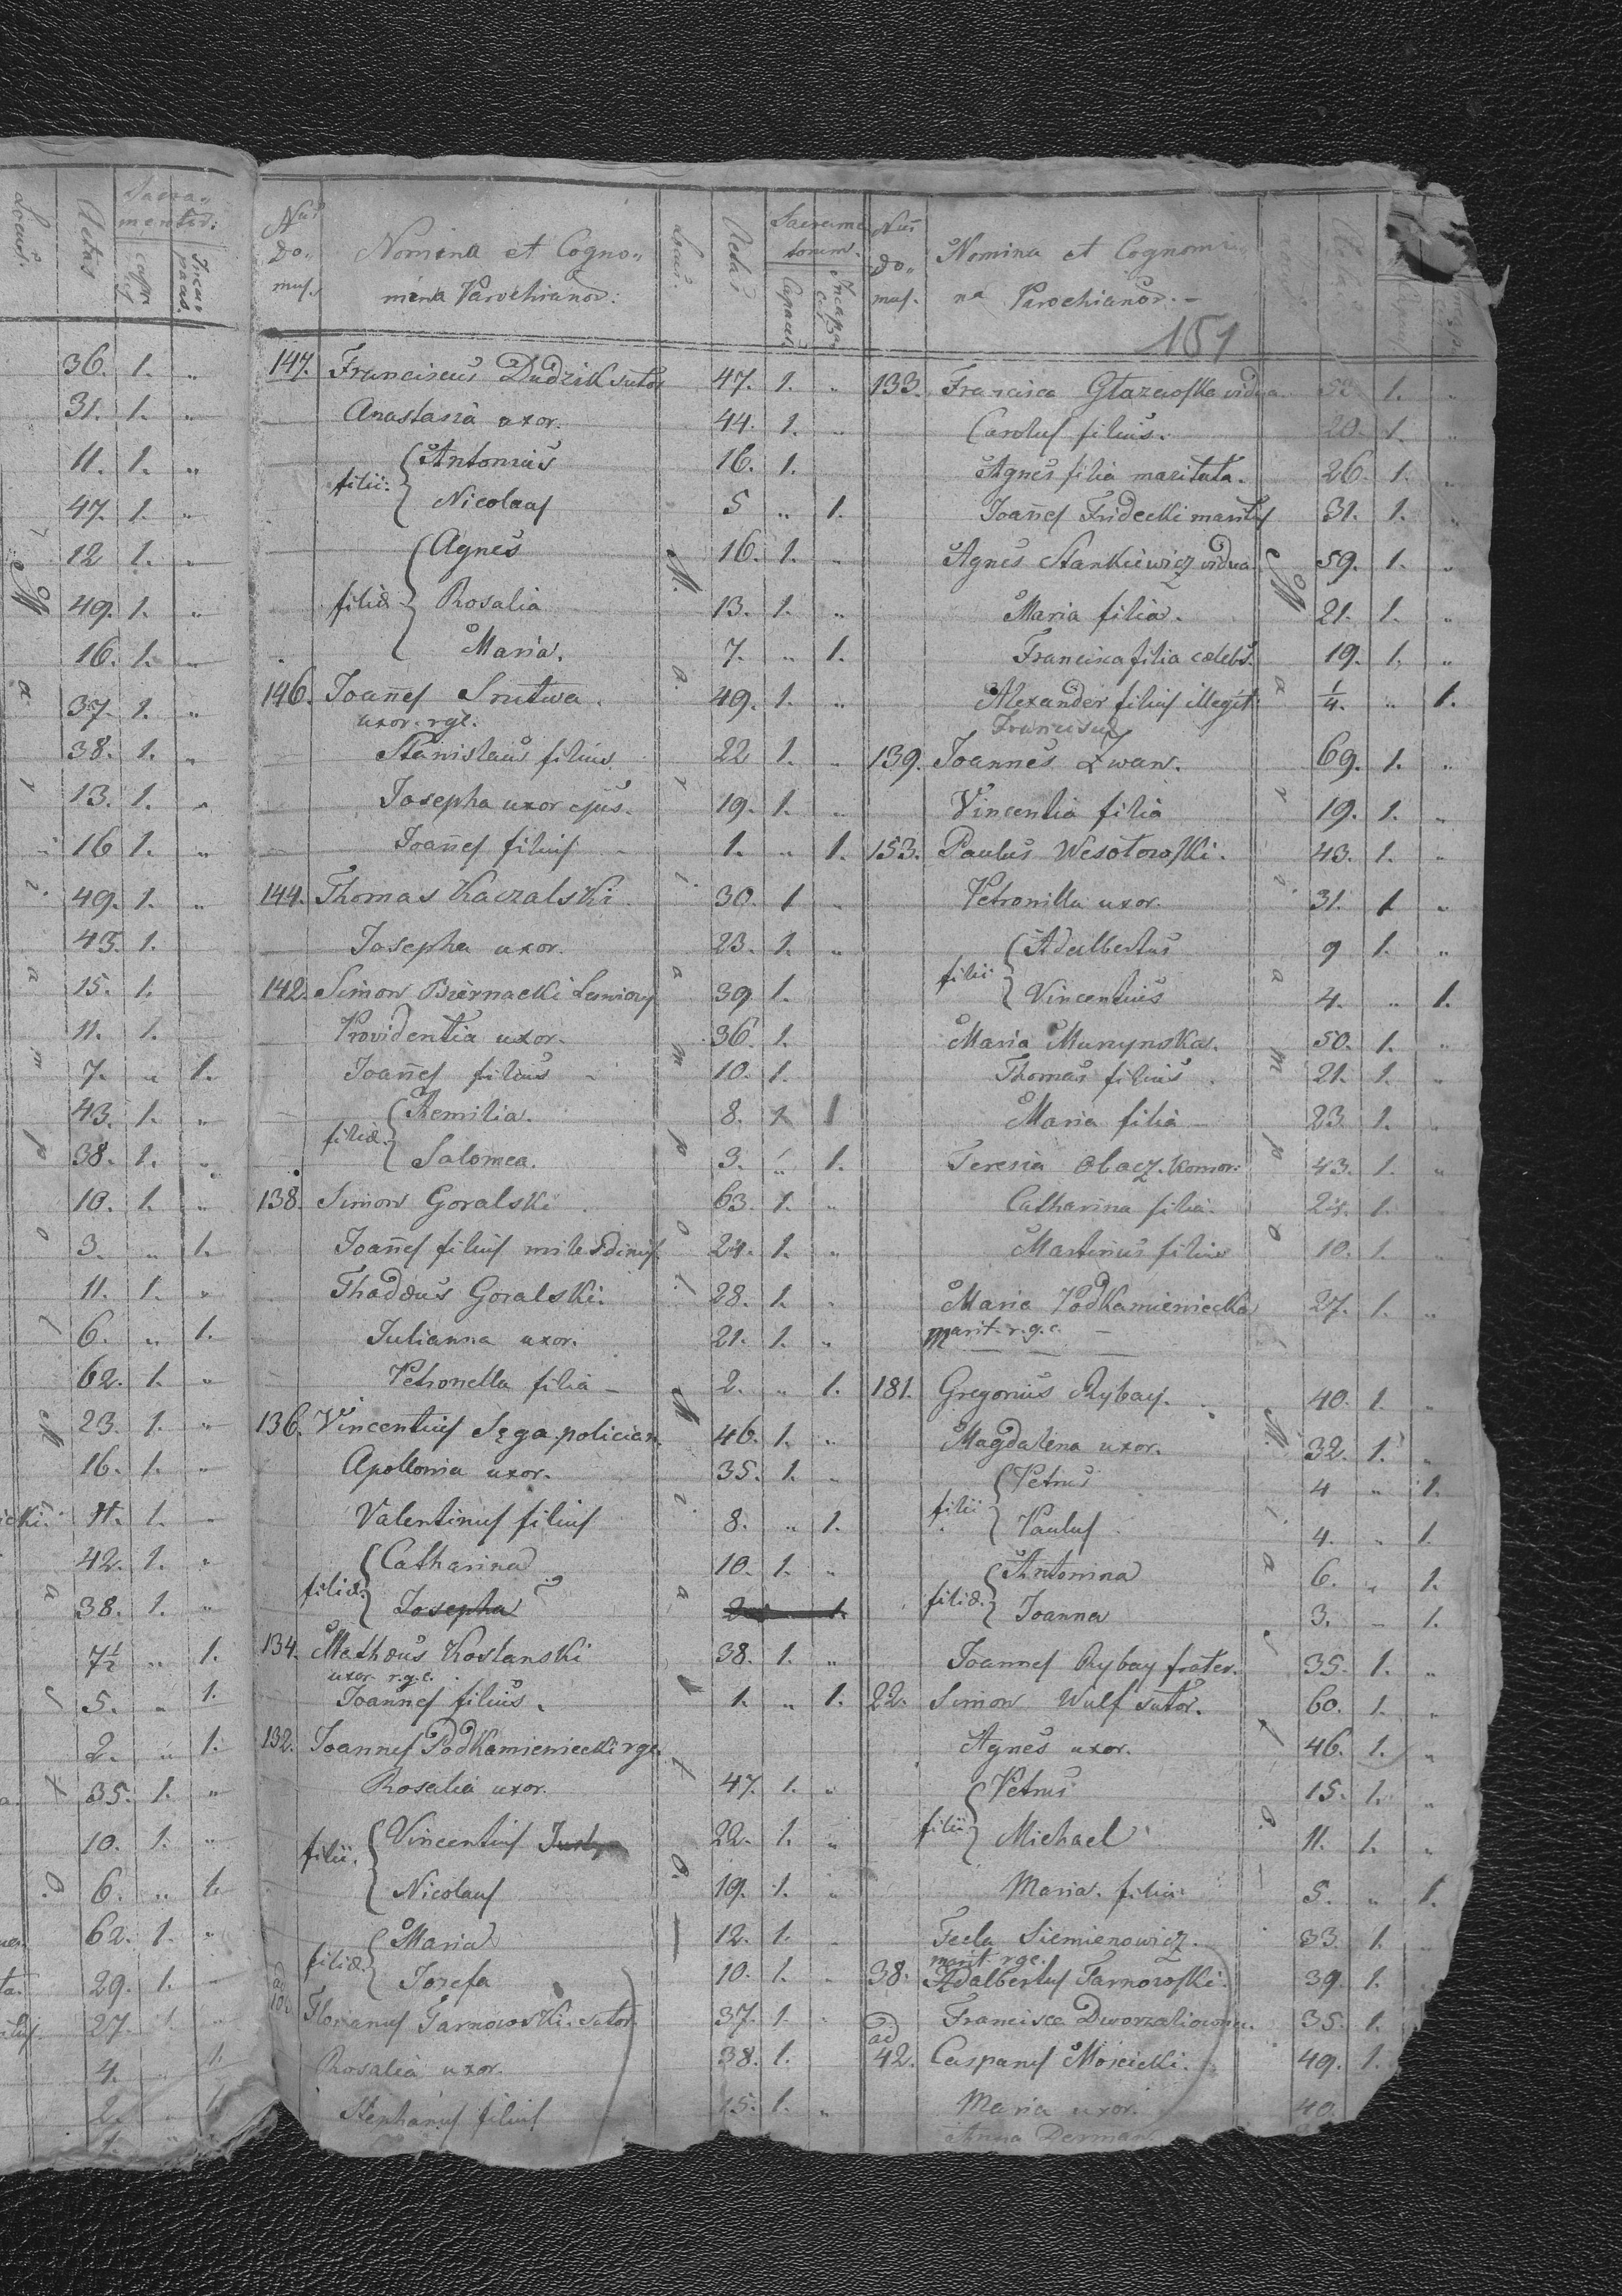 Locus.
Aetas
Sacra-
mentor:
Incapaces.
36. 1. "
31. 1. "
11. 1. "
47. 1. "
12 1. "
49. 1. "
16. 1. "
37. 1. "
38. 1. "
13. 1. "
16 1. "
49. 1. "
43. 1.
15. 1.
11. 1.
7. " 1.
43. 1. "
38. 1. "
10. 1. "
3. " 1.
11. 1. "
6. " 1.
62. 1. "
23. 1. "
16. 1. "
11. 1. "
42. 1. "
38. 1. "
7½ " 1.
5. " 1.
2. " 1.
35. 1. "
10. 1. "
6. " 1.
62. 1. "
29. 1. "
27. 1. "
4. 1.
2. 1.
Nus Domus. Nomina et Cogno-
mina Parochianor: Locus. Aetas Sacramentorum. Capaces Incapa.
147. Franciscus Dudzik sutor 47. 1. "
Anastasia uxor. 44. 1. "
filii: { Antonius 16. 1.
Nicolaus 5 " 1.
Agnes 16. 1. "
filiæ { Rosalia 13. 1. "
Maria. 7. " 1.
146. Joañes Srutwa. 49. 1. "
uxor. rgl.
Stanislaus filius. 22 1. "
Josepha uxor ejus. 19. 1. "
Joañes filius 1. " 1.
144. Thomas Kaczalski 30. 1 "
Josepha uxor. 23. 1. "
142. Simon Biernacki 39 1.
Providentia uxor. 36 1.
Joañes filius 10. 1.
filiæ { Aemilia. 8. 1 1
Salomea. 3. " 1.
138. Simon Goralski 63. 1. "
Joañes filius 24. 1. "
Thadæus Goralski. 28. 1. "
Julianna uxor. 21. 1. "
Petronella filia 2. " 1.
136. Vincentius Sęga polician. 46. 1. "
Apollonia uxor. 35. 1. "
Valentinus filius 8. " 1.
filiæ { Catharina 10. 1. "
Josepha
134. Mathæus Kostanski 38. 1. "
uxor r.g.c.
Joañes filius. 1. " 1.
132. Joannes Podkamieniecki rgc.
Rosalia uxor. 47. 1. "
filii. { Vincentius 22. 1. "
Nicolaus 19. 1. "
filiæ { Maria 12. 1.
Jozefa 10. 1. "
Florianus Tarnowski. sutor. 37. 1. "
Rosalia uxor. 38. 1.
Stephanus filius 15. 1. "
Maria Ampol. Maiastto.
Nus Domus. Nomina et Cognomi
na Parochianor.
151
133. Francisca Głazewska vidua 1. "
Carolus filius. 20. 1. "
Agnes filia maritata. 26 1. "
Joañes Fridecki maritus 31. 1. "
Agnes Stankiewicz vidua 59. 1. "
Maria filia. 21. 1. "
Francisca filia cælebs. 19. 1. "
Alexander filius illegit: ¼. " 1.
Francisca
139. Joannes Zwan. 69. 1. "
Vincentia filia 19. 1. "
153. Paulus Wesołowski. 43. 1. "
Petronilla uxor. 31. 1 "
filii { Adalbertus 9 1. "
Vincentius 4. " 1.
Maria Munynska. 50. 1. "
Thomas filius 21. 1. "
Maria filia 23. 1. "
Teresia Obacz. komor: 43. 1. "
Catharina filia. 24. 1.
Martinus filius 10. 1. "
Maria Podkamieniecka 27. 1. "
marit. r.g.c.
181. Gregorius Rybay. 40. 1. "
Magdalena uxor. 32. 1. "
filii { Petrus 4 " 1.
Paulus 4. " 1.
filiæ. { Antonina 6. " 1.
Joanna 3. - 1.
Joannes Rybay frater. 35. 1. "
22. Simon Wulf sutor. 60. 1. "
Agnes uxor. 46. 1. "
filii { Petrus 15. 1. "
Michael 11. 1. "
Maria. filia 5. " 1.
Tecla Siemienowicz. 33. 1. "
marit rgc.
38. Adalbertus Tarnowski. 39. 1.
Francisca 35. 1.
ad
42. Casparus Mościcki. 49. 1.
Maria uxor. 40.
Anna Derman